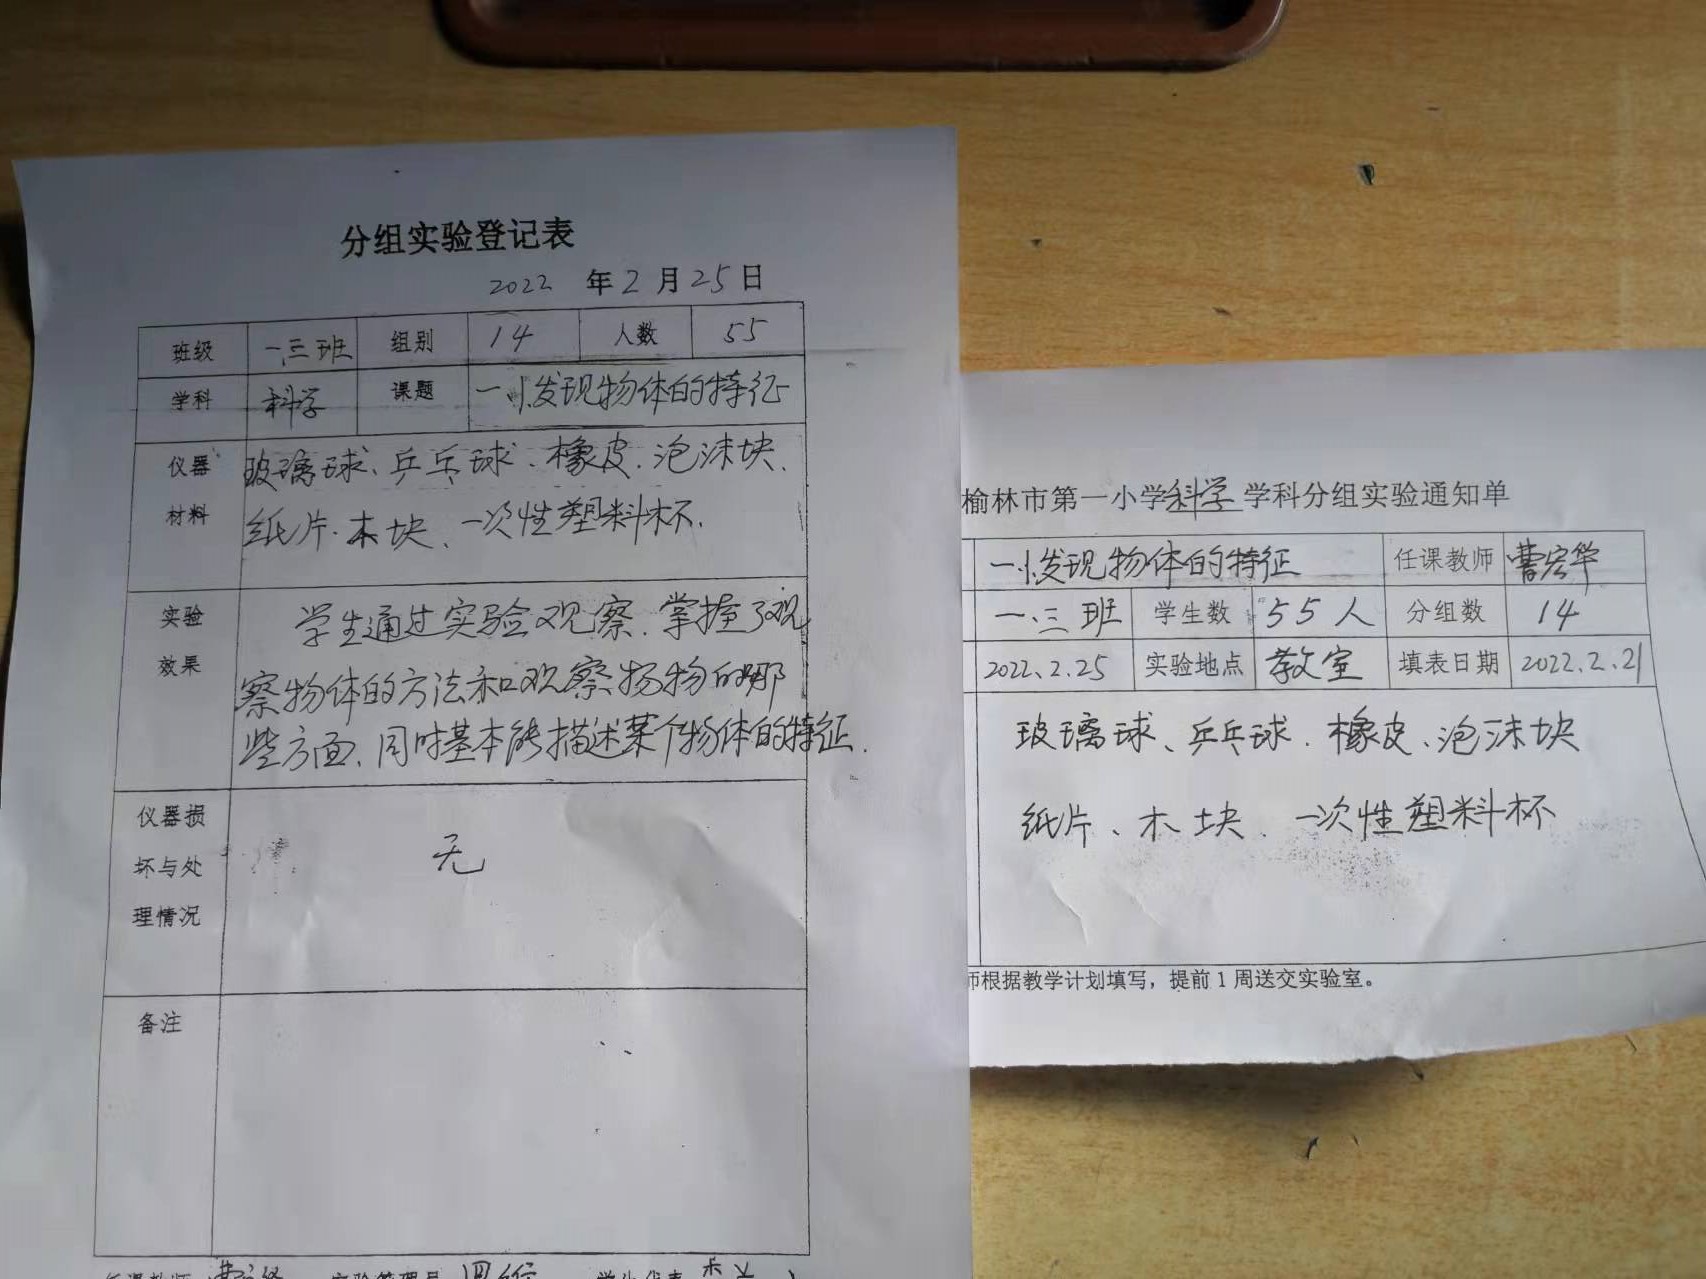 分组实验登记表
2022 年 2 月 25 日
班级 一.三班 组别 14 人数 55
学科 科学 课题 一.1.发现物体的特征
仪器 玻璃球、乒乓球、橡皮、泡沫块、
材料 纸片、木块、一次性塑料杯.
实验 学生通过实验观察.掌握了观
效果 察物体的方法和观察物的哪
些方面、同时基本能描述某个物体的特征.
仪器损
坏与处 无
理情况
备注
任课教师 实验管理员 学生代表
榆林市第一小学科学学科分组实验通知单
一.1.发现物体的特征 任课教师 曹宏华
一.三班 学生数 55人 分组数 14
2022.2.25 实验地点 教室 填表日期 2022.2.21
玻璃球、乒乓球、橡皮、泡沫块
纸片、木块、一次性塑料杯
师根据教学计划填写，提前1周送交实验室。